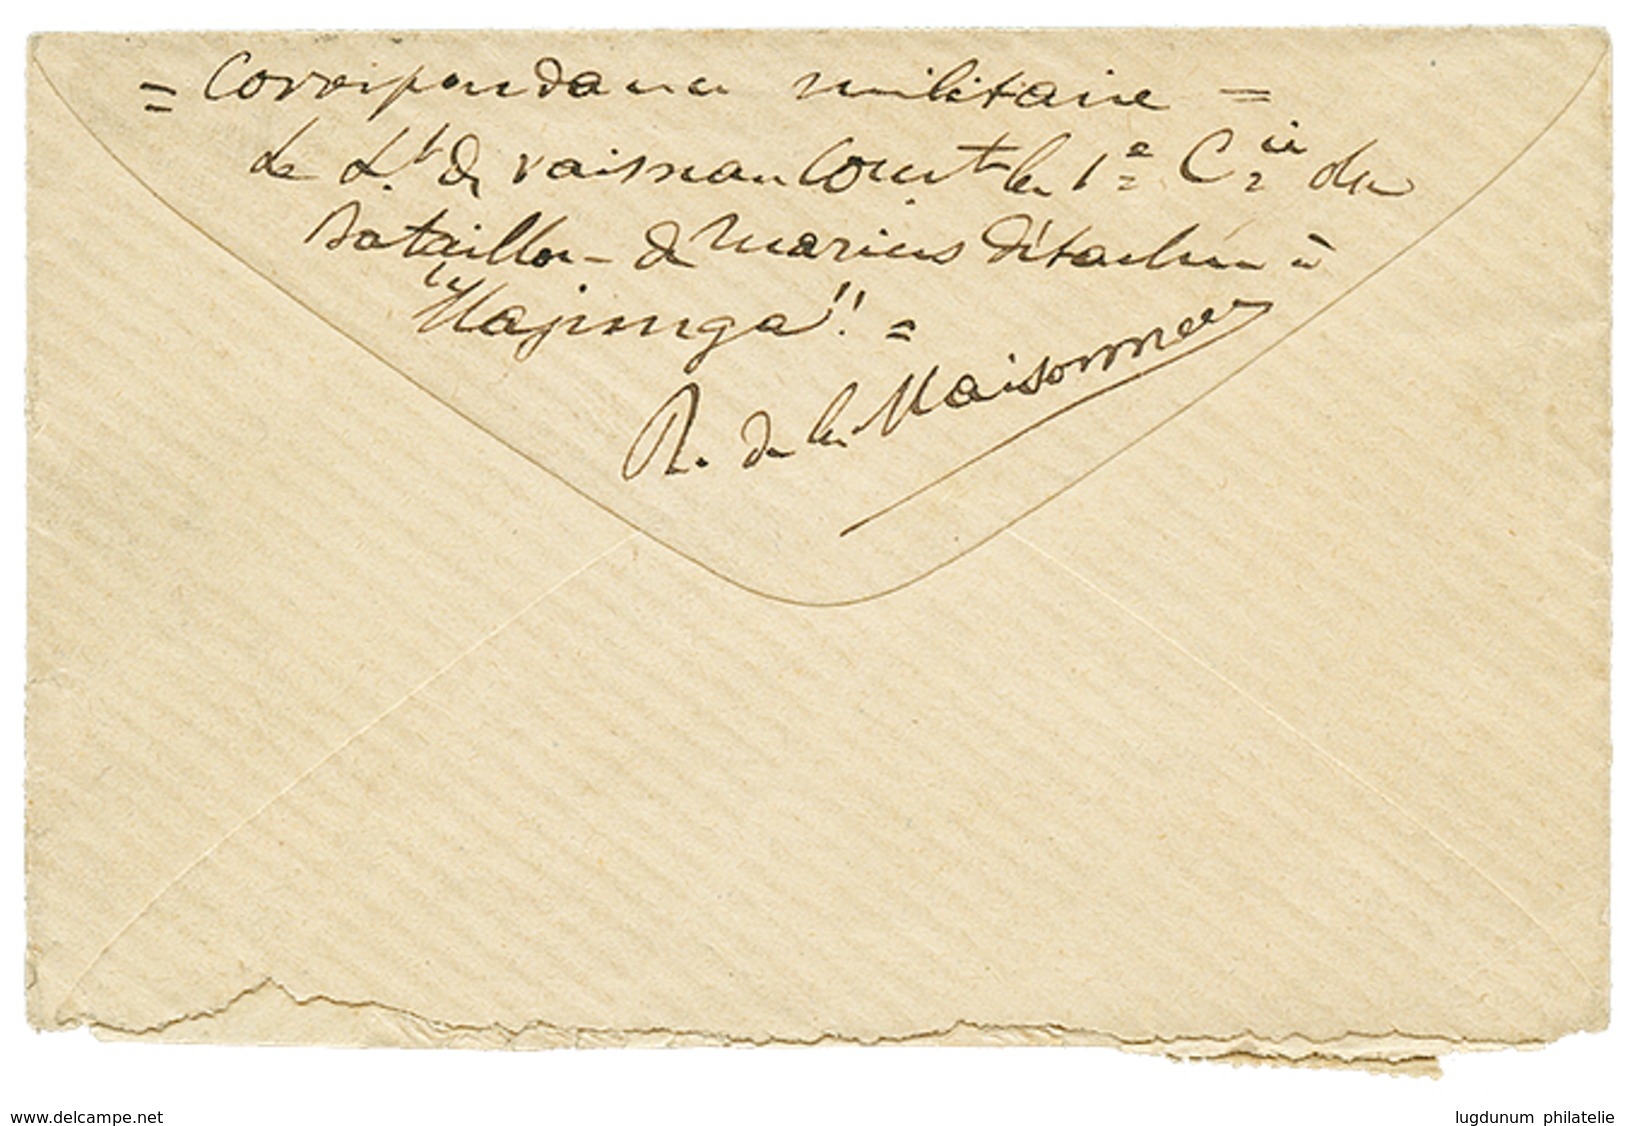 = Correspondance militaire =
Le Lt de vaisseau Comt la 1e Cie du
Bataillon de Marins détaché à
"Majunga" =
R. de la Maisonneuve
www.delcampe.net
lugdunum philatelie